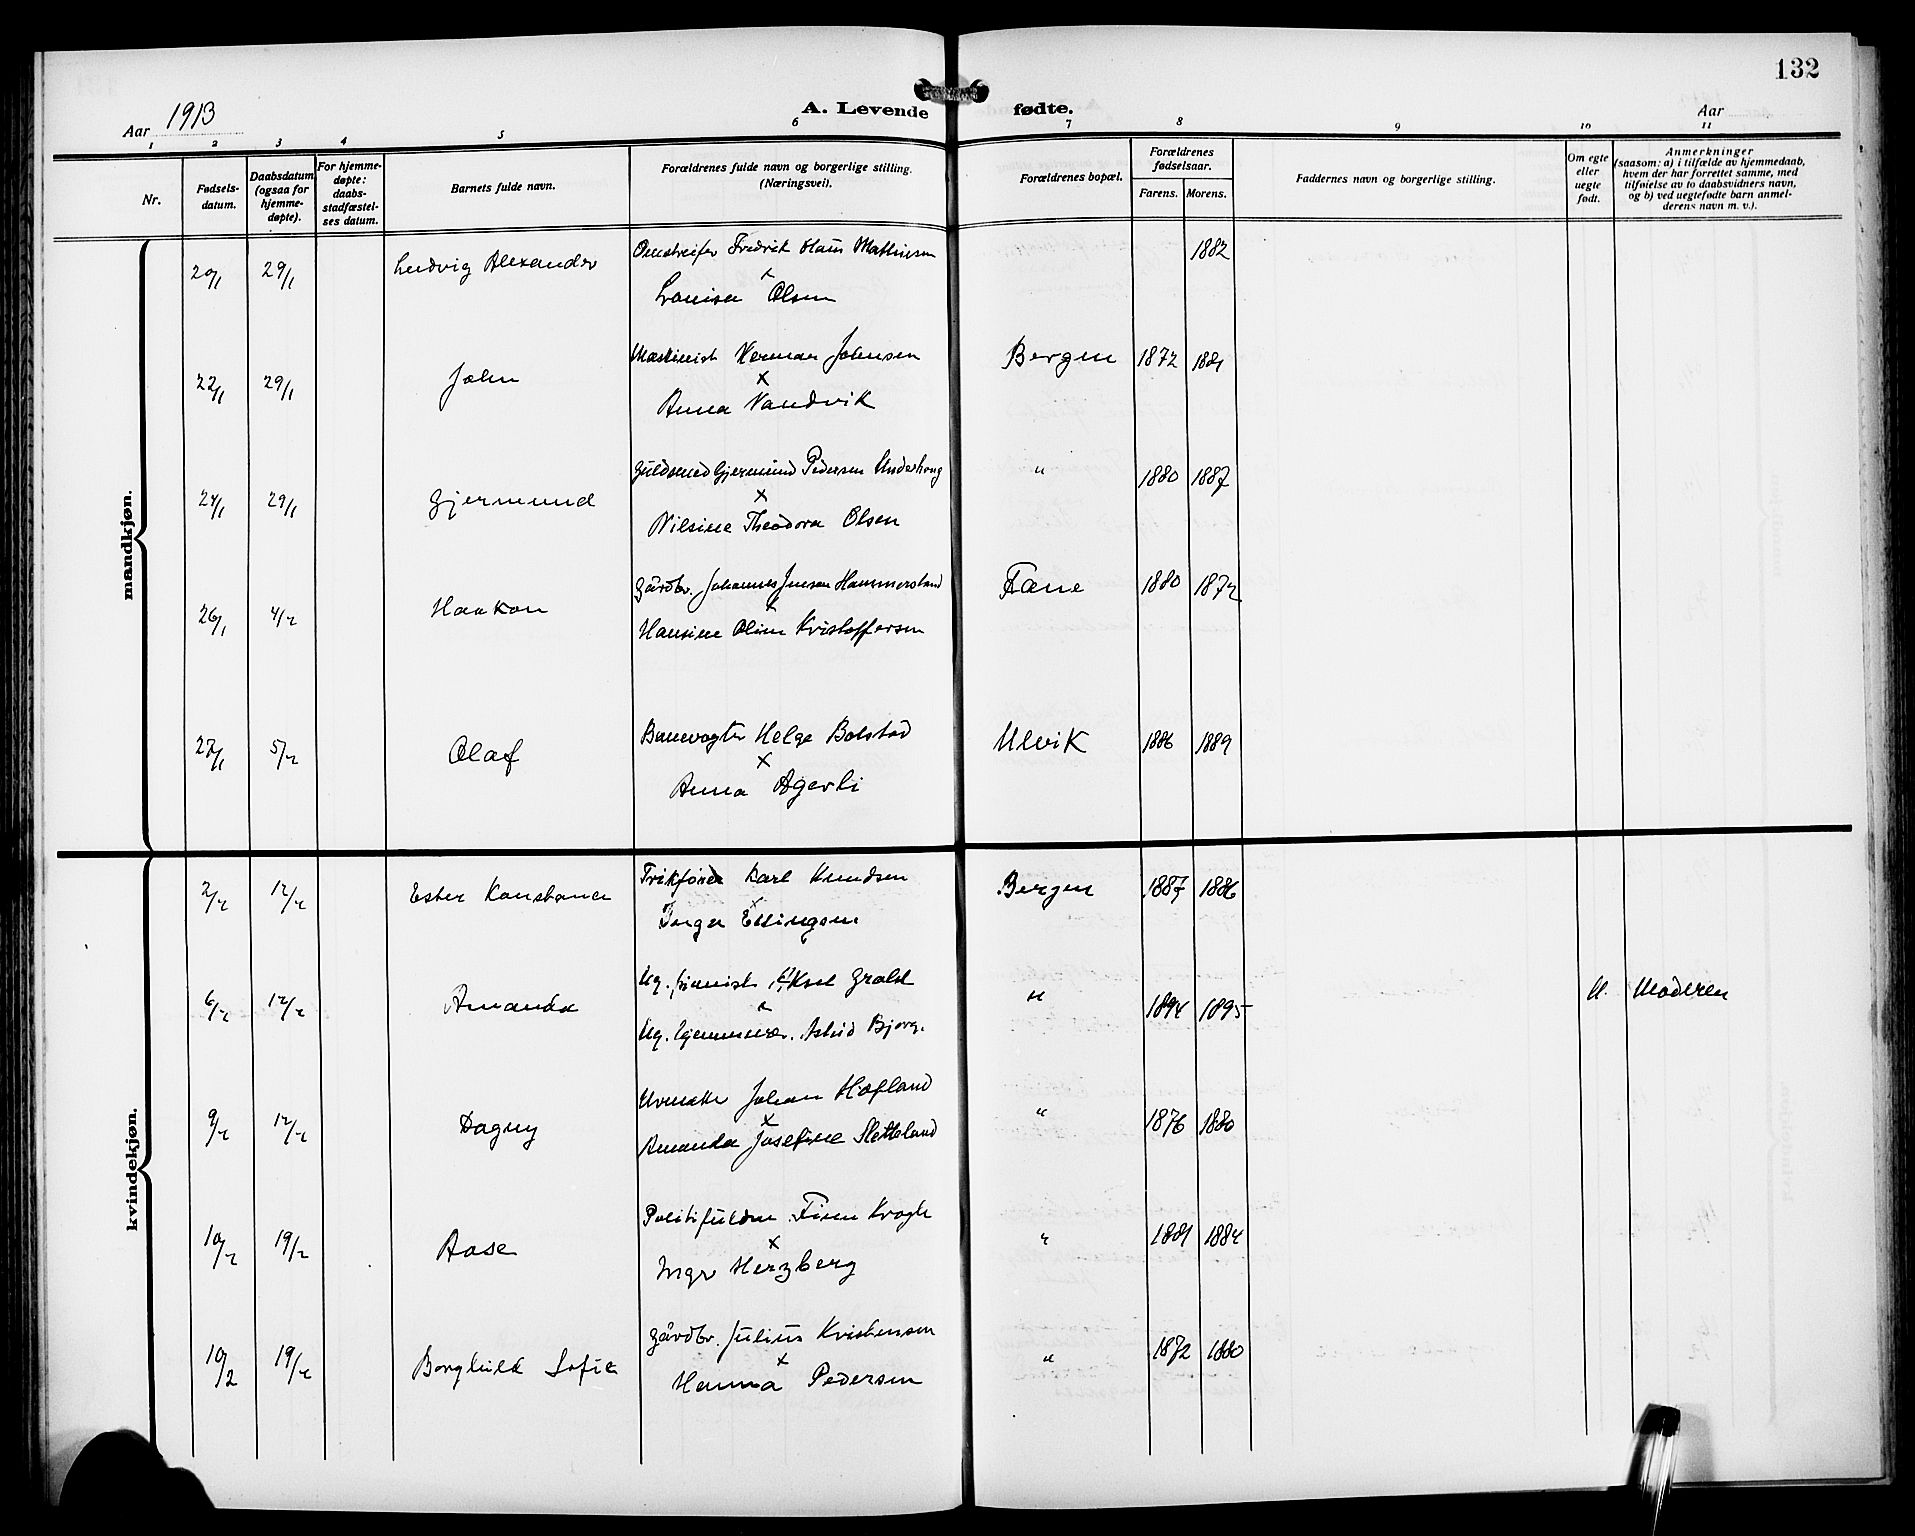 132
Aar 1913
A. Levende fødte.
Aar
1 2 3 4 5 6 7 8 9 10 11
Nr.
Fødsels-
datum.
Daabsdatum
(ogsaa for
hjemme-
døpte).
For hjemme-
døpte:
daabs-
stadfæstel-
ses datum.
Barnets fulde navn.
Forældrenes fulde navn og borgerlige stilling.
(Næringsvei).
Forældrenes bopæl.
Forældrenes
fødselsaar.
Farens. Morens.
Faddernes navn og borgerlige stilling.
Om egte
eller
uegte
født.
Anmerkninger
(saasom: a) i tilfælde av hjemmedaab,
hvem der har forrettet samme, med
tilføielse av to daabsvidners navn,
og b) ved uegtefødte barn anmel-
derens navn m. v.).
mandkjøn.
20/1 29/1 Ludvig Alexander Omstreifer Fredrik Olaus Mathiesen 1882
Lovisa Olsen
22/1 29/1 John Maskinist Herman Johnsen Bergen 1872 1881
x
Anna Vandvik
24/1 29/1 Gjermund Guldsmed Gjermund Pedersen Underhoug " 1880 1887
x
Nilsine Theodora Olsen
26/1 4/2 Haakon Gårdbr. Johannes Jensen Hammersland Fane 1880 1872
x
Hansine Oline Kristoffersen
27/1 5/2 Olaf Banevogter Helge Bolstad Ulvik 1886 1889
x
Anna Agerli
kvindekjøn.
2/2 12/2 Ester Konstance Karl Knudsen Bergen 1887 1886
x
Inga Ellingsen
6/2 12/2 Amanda Ug. pianist Aksel Grald " 1894 1895 U. Moderen
Ug. hjemmevær. Astrid Bjorg.
9/2 12/2 Dagny Johan Hofland " 1876 1880
x
Amanda Josefine Sletteland
10/2 19/2 Aase Politifuldm. Finn Krogh " 1881 1884
x
Ingr Herzberg
10/2 19/2 Borghild Sofie Gårdbr. Julius Kristensen " 1872 1880
x
Hanna Pedersen